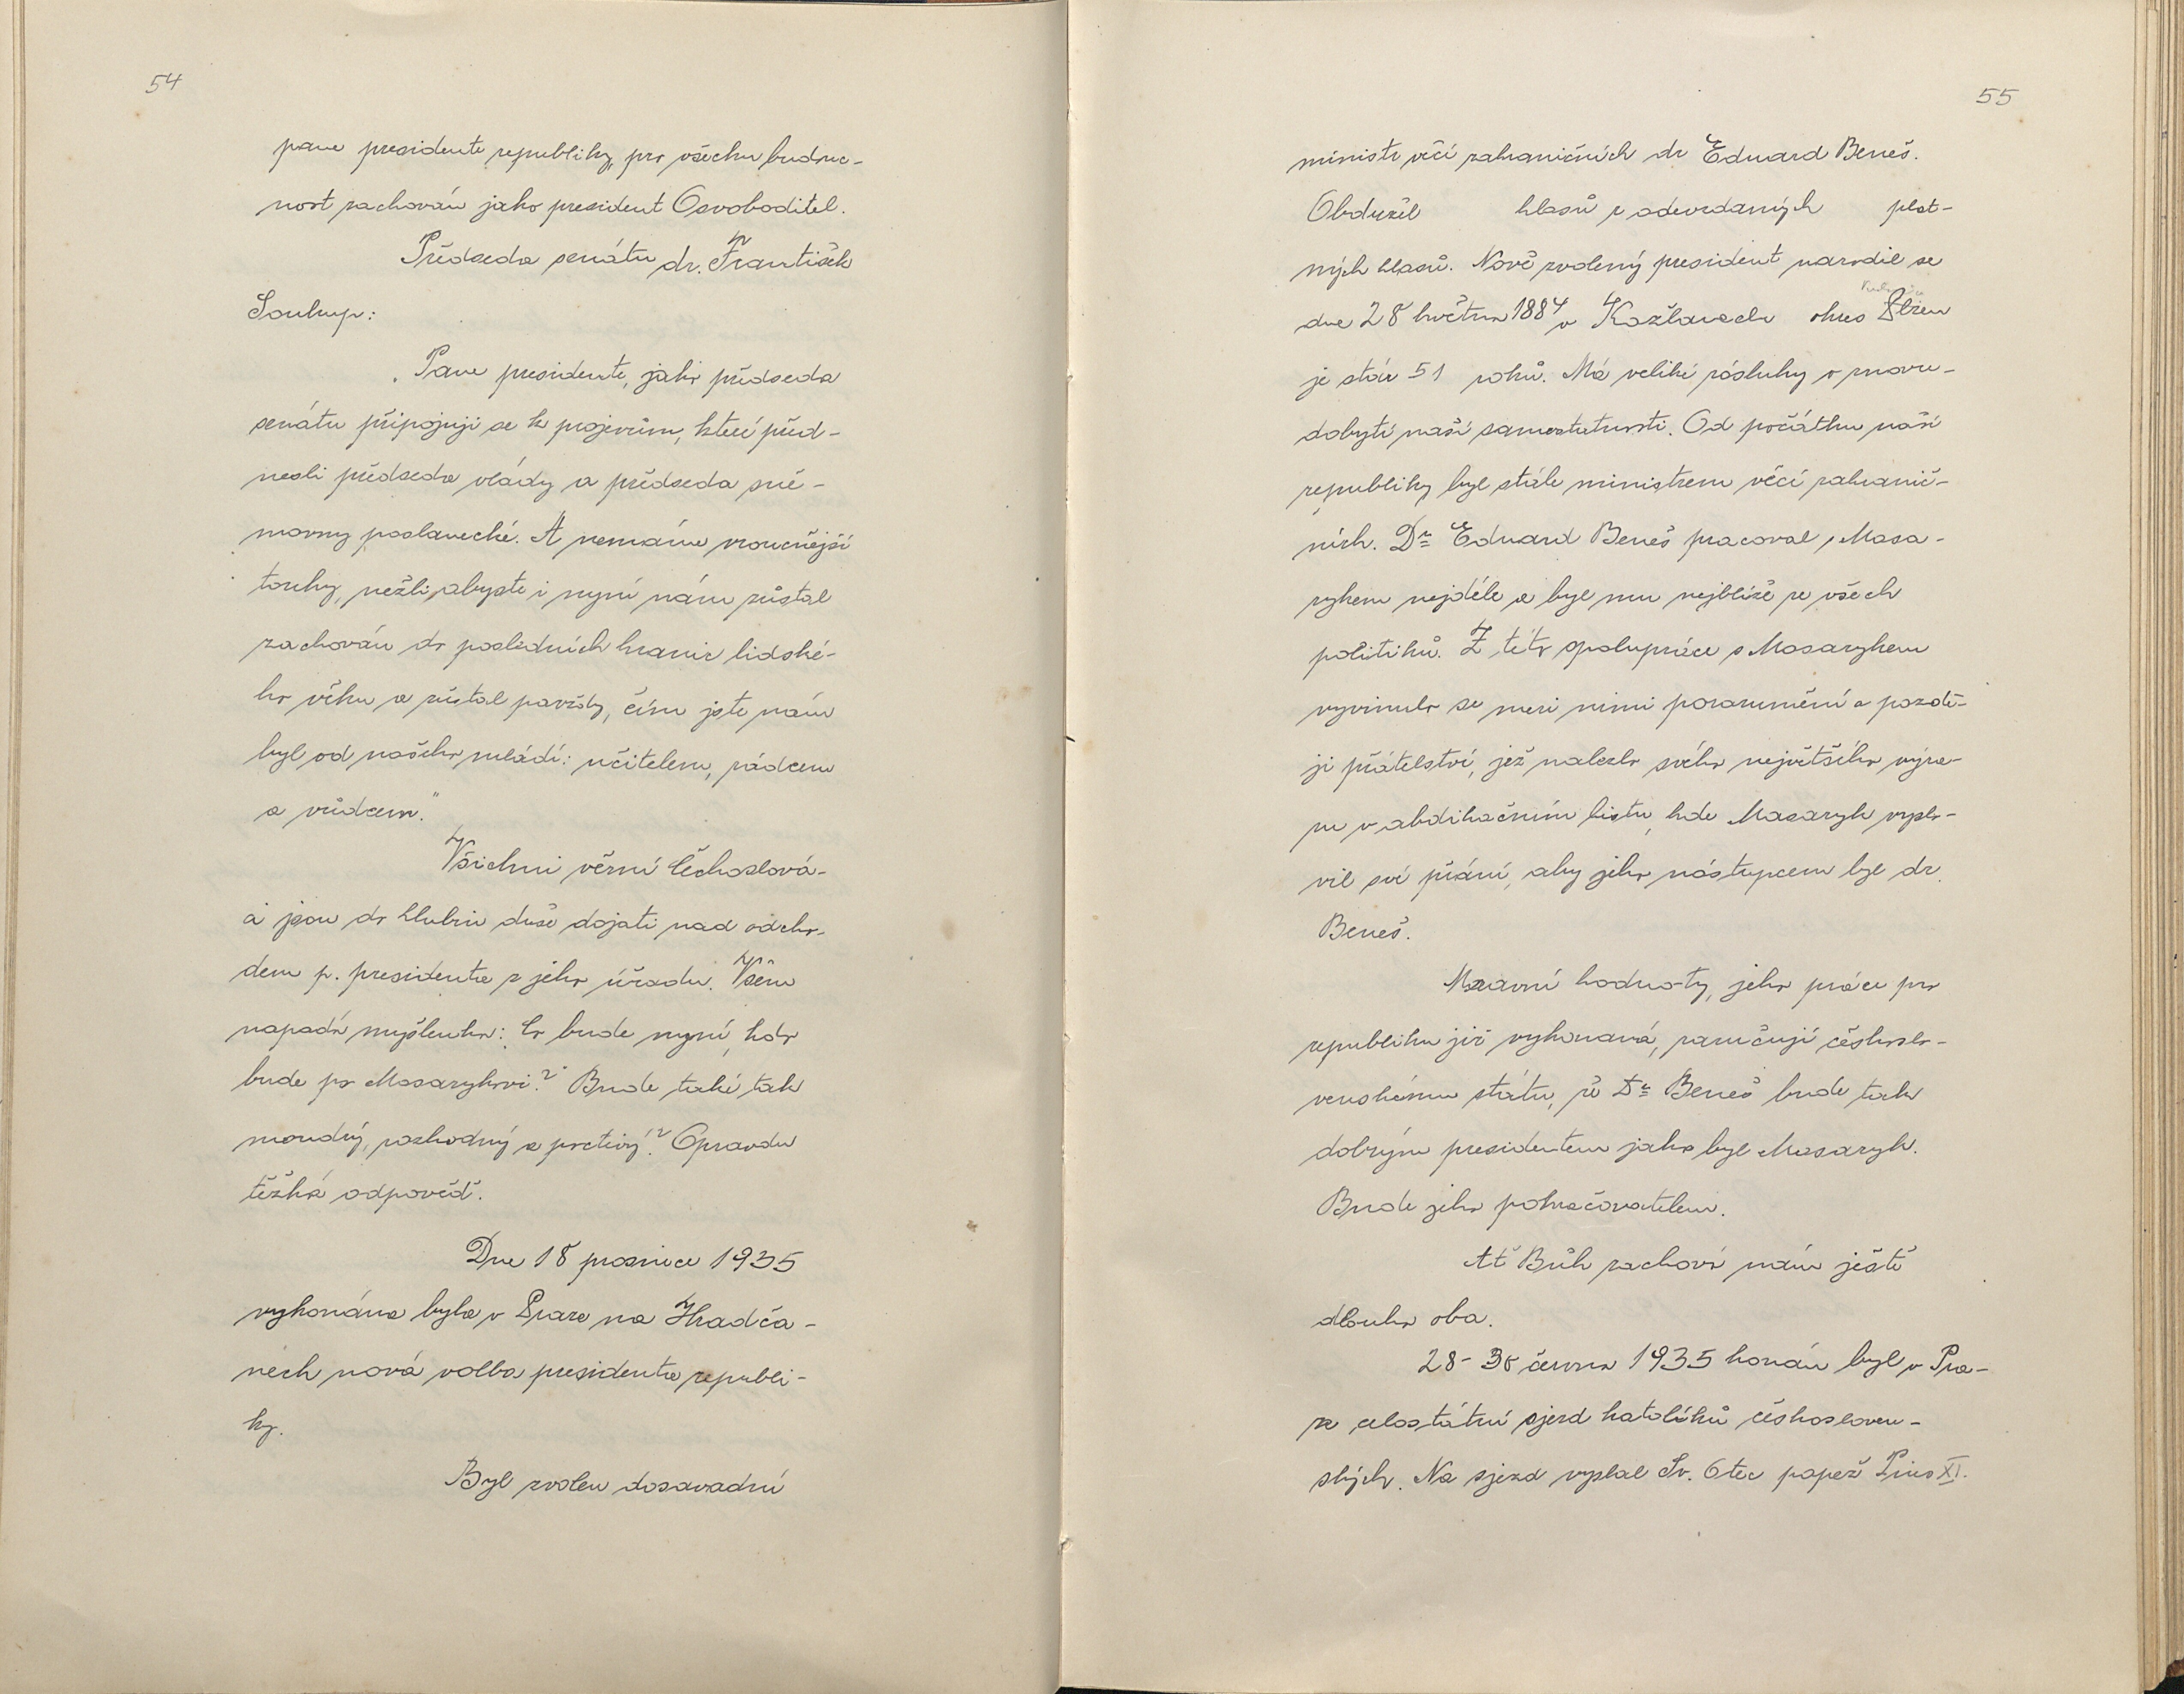 54
pane presidente republiky, pro všechnu budouc-
nost zachován jako president Osvoboditel.
Předseda senátu dr. František
Soukup:
„Pane presidente, jako předseda
senátu připojuji se k projevům, které před-
nesli předseda vlády a předseda sně-
movny poslanecké. A nemáme vroucnější
touhy, nežli, abyste i nyní nám zůstal
zachován do posledních hranic lidské-
ho věku a zůstal navždy, čím jste nám
byl od našeho mládí: učitelem, rádcem
a vůdcem."
Všichni věrní Čechoslová-
ci jsou do hlubin duše dojati nad odcho-
dem p. presidenta z jeho úřadu. Všem
napadá myšlenka: Co bude nyní, kdo
bude po Masarykovi? Bude také tak
moudrý, rozhodný a poctivý? Opravdu
těžká odpověď.
Dne 18 prosince 1935
vykonána byla v Praze na Hradča-
nech nová volba presidenta republi-
ky.
Byl zvolen dosavadní
55
ministr věcí zahraničních dr Eduard Beneš.
Obdržel hlasů z odevzdaných plat-
ných hlasů. Nově zvolený president narodil se
dne 28 května 1884 v Kožlanech okres Plzen
je stár 51 roků. Má veliké zásluhy o znovu-
dobytí naší samostatnosti. Od počátku naší
republiky byl stále ministrem věcí zahranič-
ních. Dr Eduard Beneš pracoval s Masa-
rykem nejdéle a byl mu nejblíže ze všech
politiků. Z této spolupráce s Masarykem
vyvinulo se mezi nimi porozumění a pozdě-
ji přátelství, jež nalezlo svého největšího výra-
zu v abdikačním listu, kde Masaryk vyslo-
vil své přání, aby jeho nástupcem byl dr.
Beneš.
Mravní hodnoty, jeho práce pro
republiku již vykonaná, zaručují českoslo-
venskému státu, že Dr Beneš bude tak
dobrým presidentem jako byl Masaryk.
Bude jeho pokračovatelem.
Ať Bůh zachová nám ještě
dlouho oba.
28-30 června 1935 konán byl v Pra-
ze celostátní sjezd katolíků českosloven-
ských. Na sjezd vyslal Sv. Otec papež Pius XI.